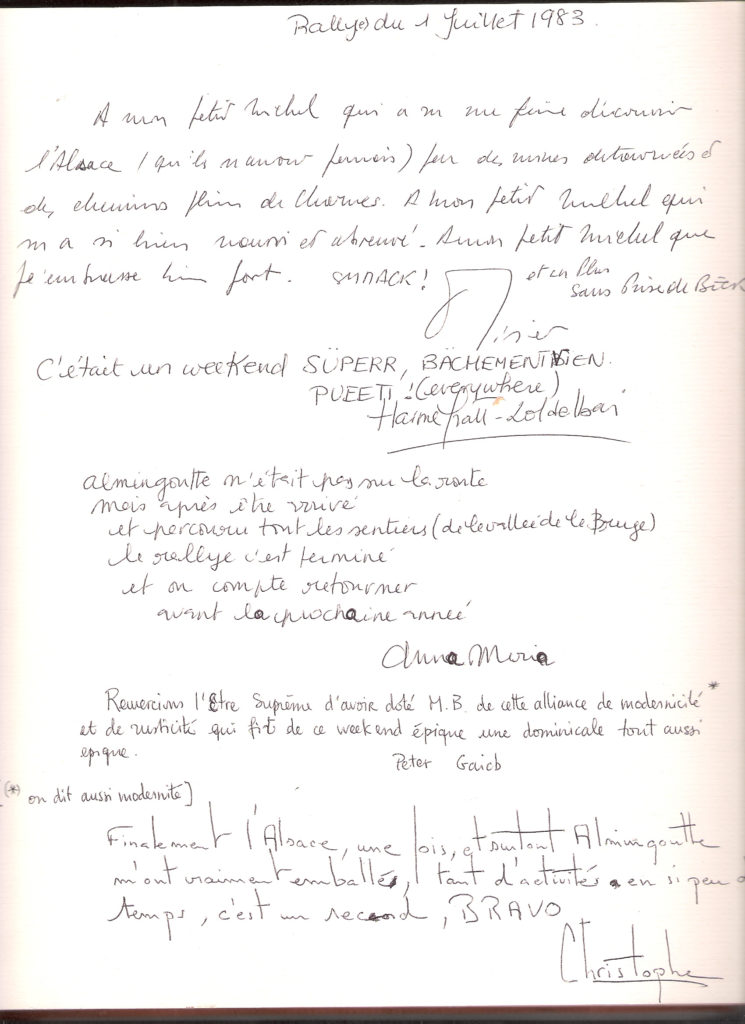 Rallye du 1 Juillet 1983.
A mon petit Michel qui a su me faire découvrir
l'Alsace (qu'ils n'auront jamais) par des mines détournées et
des chemins pleins de charmes. A mon petit Michel qui
m'a si bien nourri et abreuvé. A mon petit Michel que
je embrasse bien fort. SMAACK!
et en plus
sans Prise de
C'était un weekend SÜPERR, BÄCHEMENT BIEN.
PUEETT! (everywhere)
almingoutte n'était pas sur la route
mais après être arrivé
et percouru tout les sentiers (de la vallée de la Bruge)
le rallye c'est terminé
et on compte retourner
avant la prochaine année
Anna Maria
Remercions l'Être Suprême d'avoir doté M.B. de cette alliance de modernicité *
et de rusticité qui fit de ce weekend épique une dominicale tout aussi
épique.
Peter Gaicb
(*) on dit aussi modernité]
Finalement l'Alsace, une fois, et surtout Almingoutte
m'ont vraiment emballés, tant d'activités en si peu d
temps, c'est un record, BRAVO
Christophe